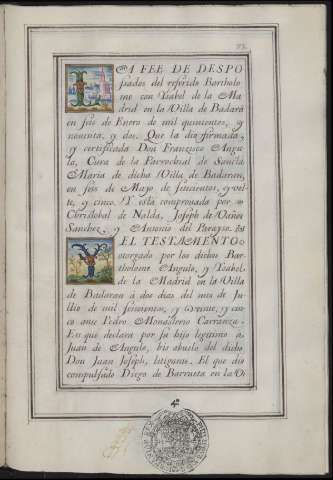 LA FEE DE DESPO
sados del referido Bartholo
me con Ysabel de la Ma
drid en la Villa de Badarã
en seis de Enero de mil quinientos, y
noventa, y dos. Que la dio firmada,
y certificada Don Francisco Angu
lo, Cura de la Parrochial de Sancta
Maria de dicha Villa de Badaran,
en seis de Mayo de seiscientos, y vein
te, y cinco. Y esta comprouada por
Christobal de Nalda, Joseph de Vaños
Sanchez, y Antonio del Parayso.
Y EL TESTAMENTO
otorgado por los dichos Bar
tholome Angulo, y Ysabel
de la Madrid en la Villa
de Badaran à dos dias del mes de Ju
llio de mil seiscientos, y treinta, y cin
co ante Pedro Monasterio Carranza.
En que declara por su hijo legitimo à
Juan de Angulo, bis abuelo del dicho
Don Juan Joseph, litigante. El que dio
compulsado Diego de Barrueta en la Vi
4º